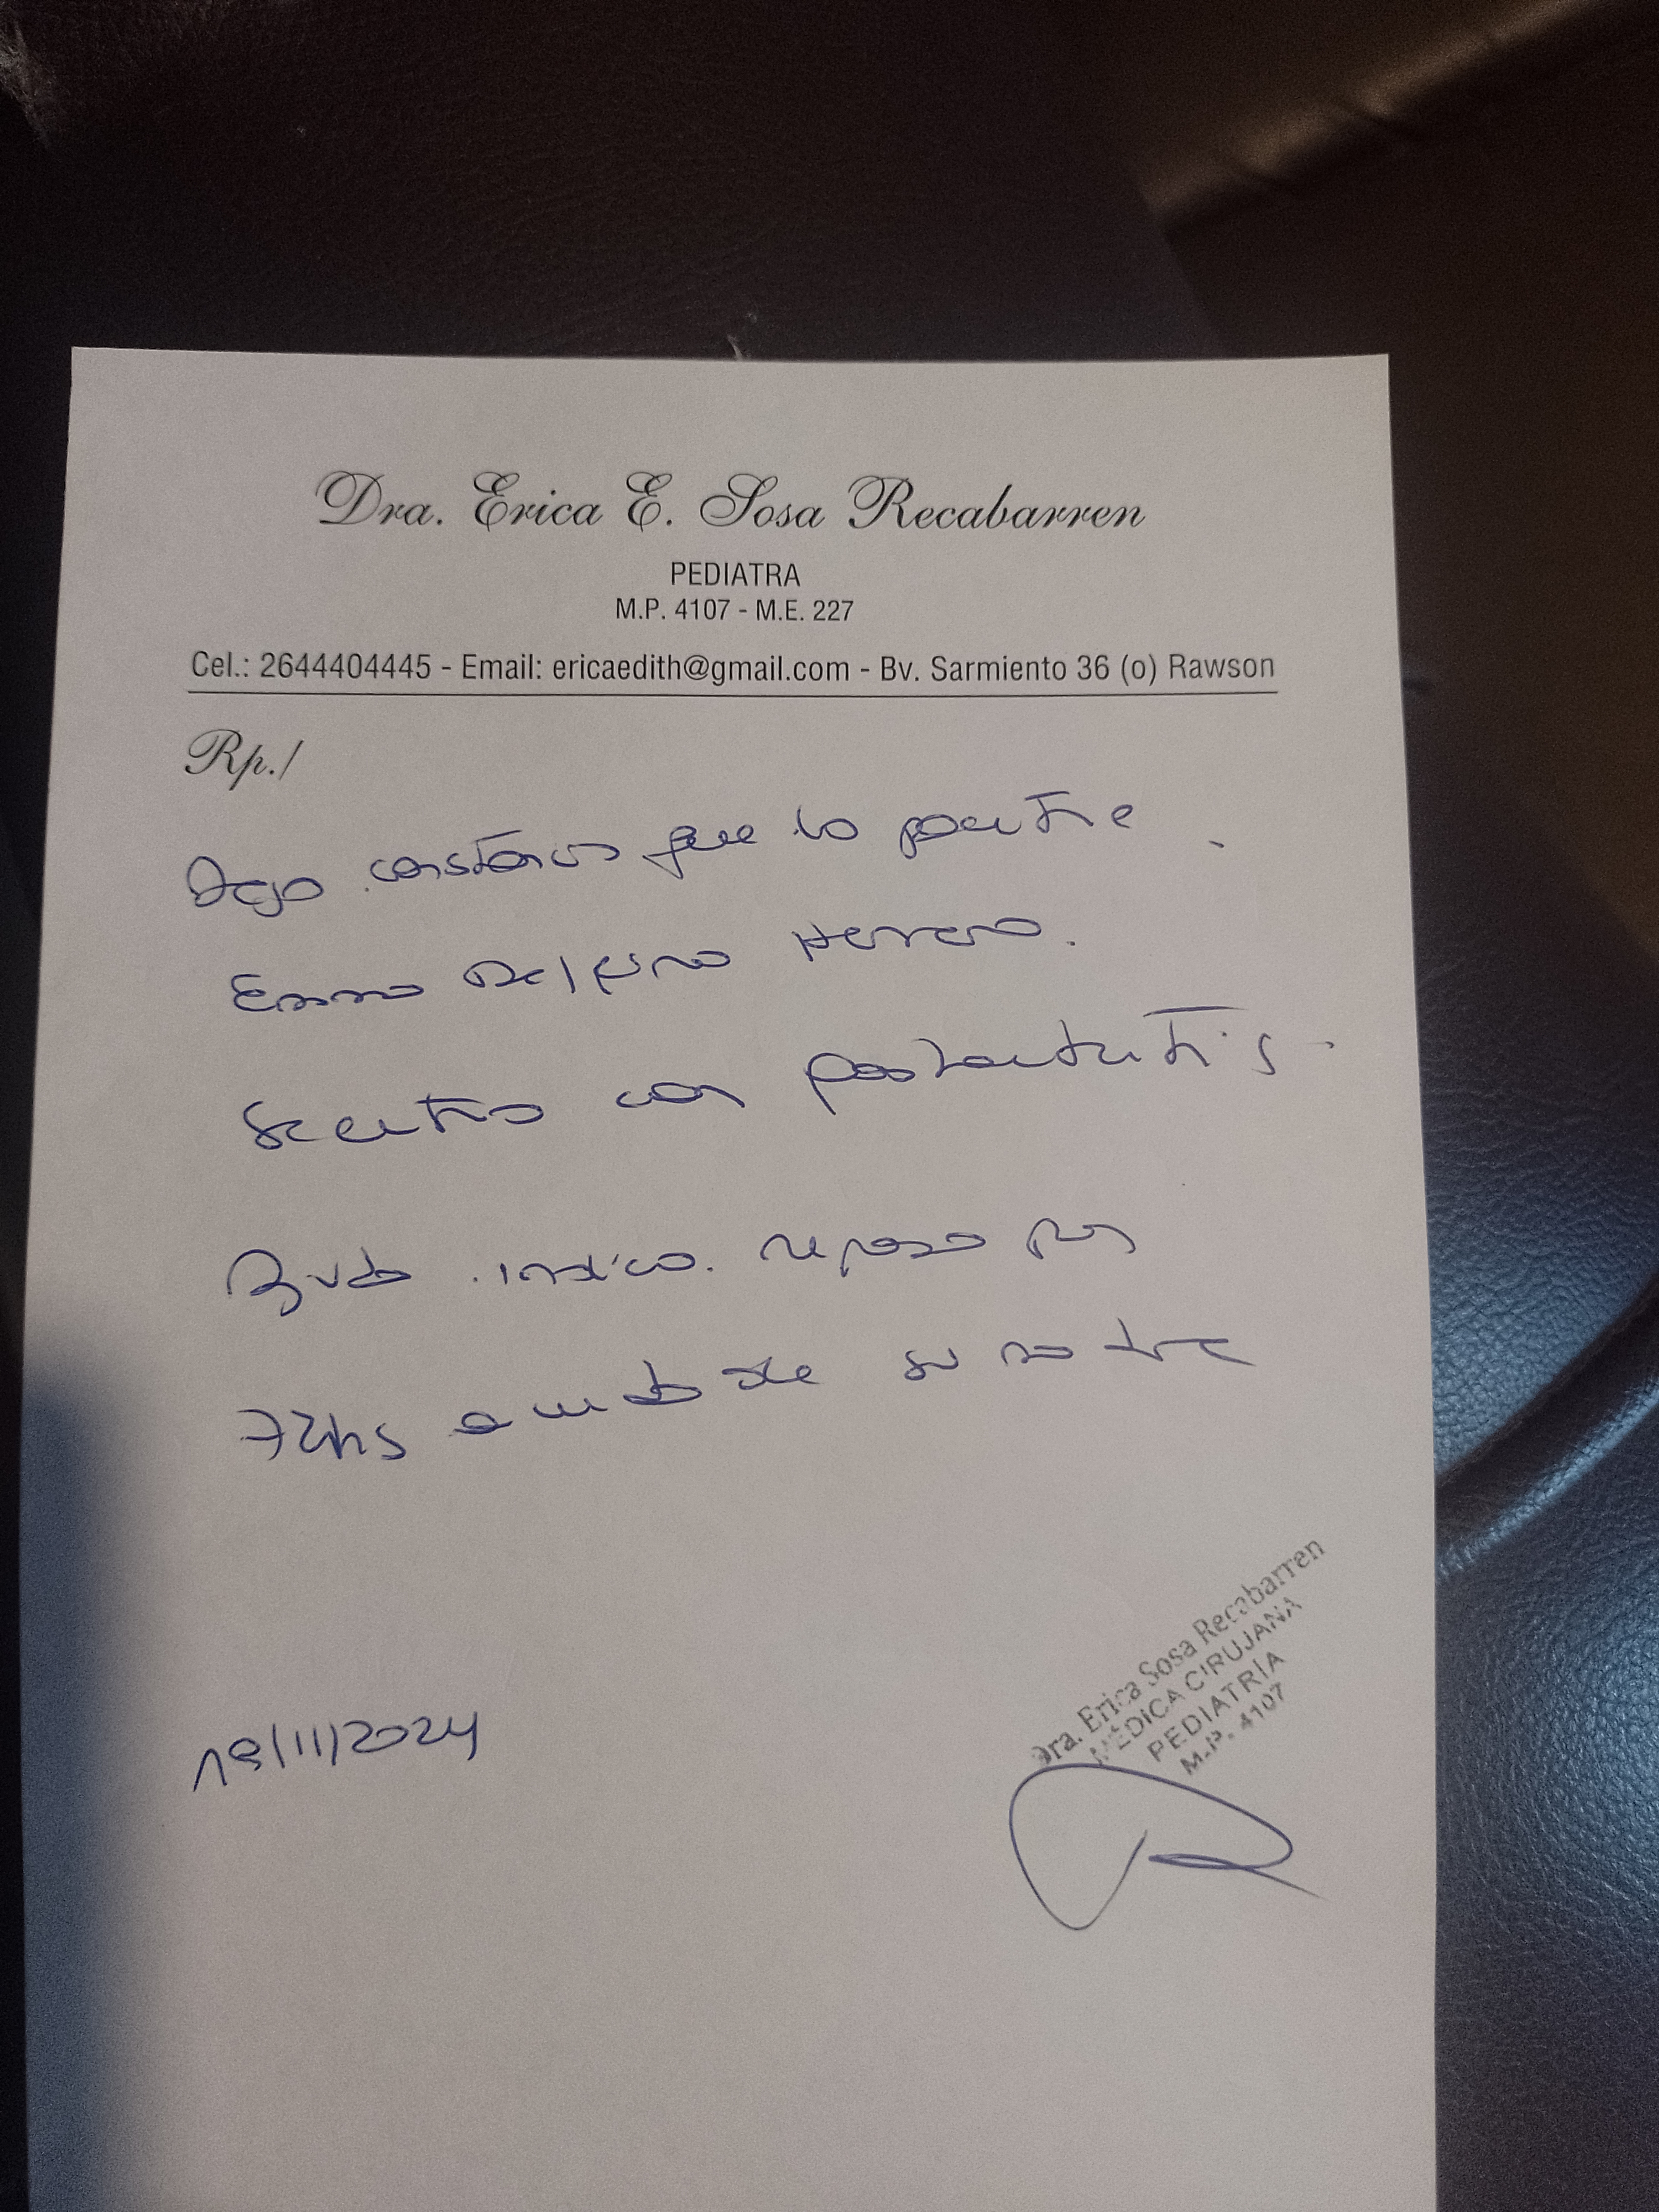 Dra. Erica E. Sosa Recabarren
PEDIATRA
M.P. 4107 - M.E. 227
Cel.: 2644404445 - Email: ericaedith@gmail.com - Bv. Sarmiento 36 (o) Rawson
Rp./
Dejo constancia que la paciente
Emma Delfina Herrera.
se encuentra con
aguda indico reposo por
72hs al cuidado de su madre
Dra. Erica Sosa Recabarren
MÉDICA CIRUJANA
PEDIATRÍA
M.P. 4107
19/11/2024